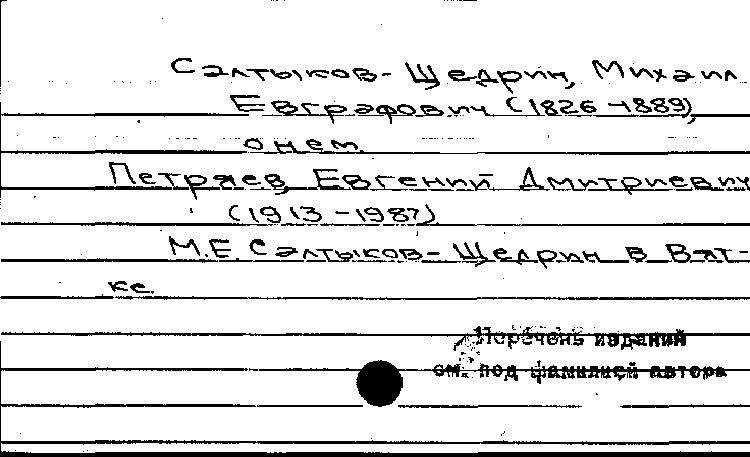 Салтыков-Щедрин, Михаил
Евграфович (1826-1889),
о нем.
Петряев, Евгений Дмитриевич
(1913-1987)
М.Е. Салтыков-Щедрин в Вят-
ке.
Перечень изданий
см. под фамилией автора